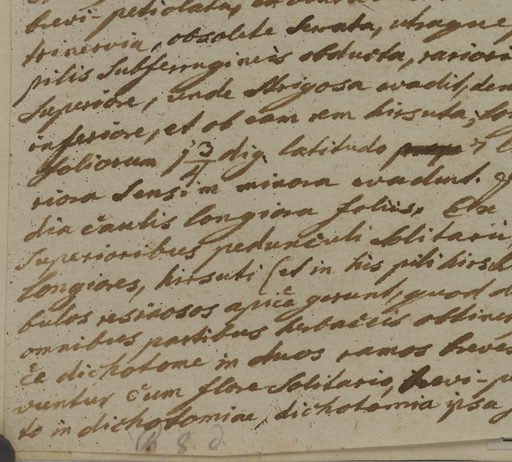 brevi-petiolata,
trinervia, obsolete serata, utraque
pilis subferrugineis obducta, rariori
superiore, unde strigosa evadit, den
inferiore, et ob eam rem hirsuta, lon
foliorum 1 3/4 dig latitudo
riora sensim minora evadunt.
dia caulis longiora foliis. Ex
superioribus pedunculi solitarii,
longiores, hirsuti (et in his pili hirsut
bulos resinosos apice gerunt, quod d
omnibus partibus herbaceis obtinet
ce dichotome in duos ramos breves
vuntur cum flore solitario, brevi-p
to in dichotomiae, dichotomia ipsa